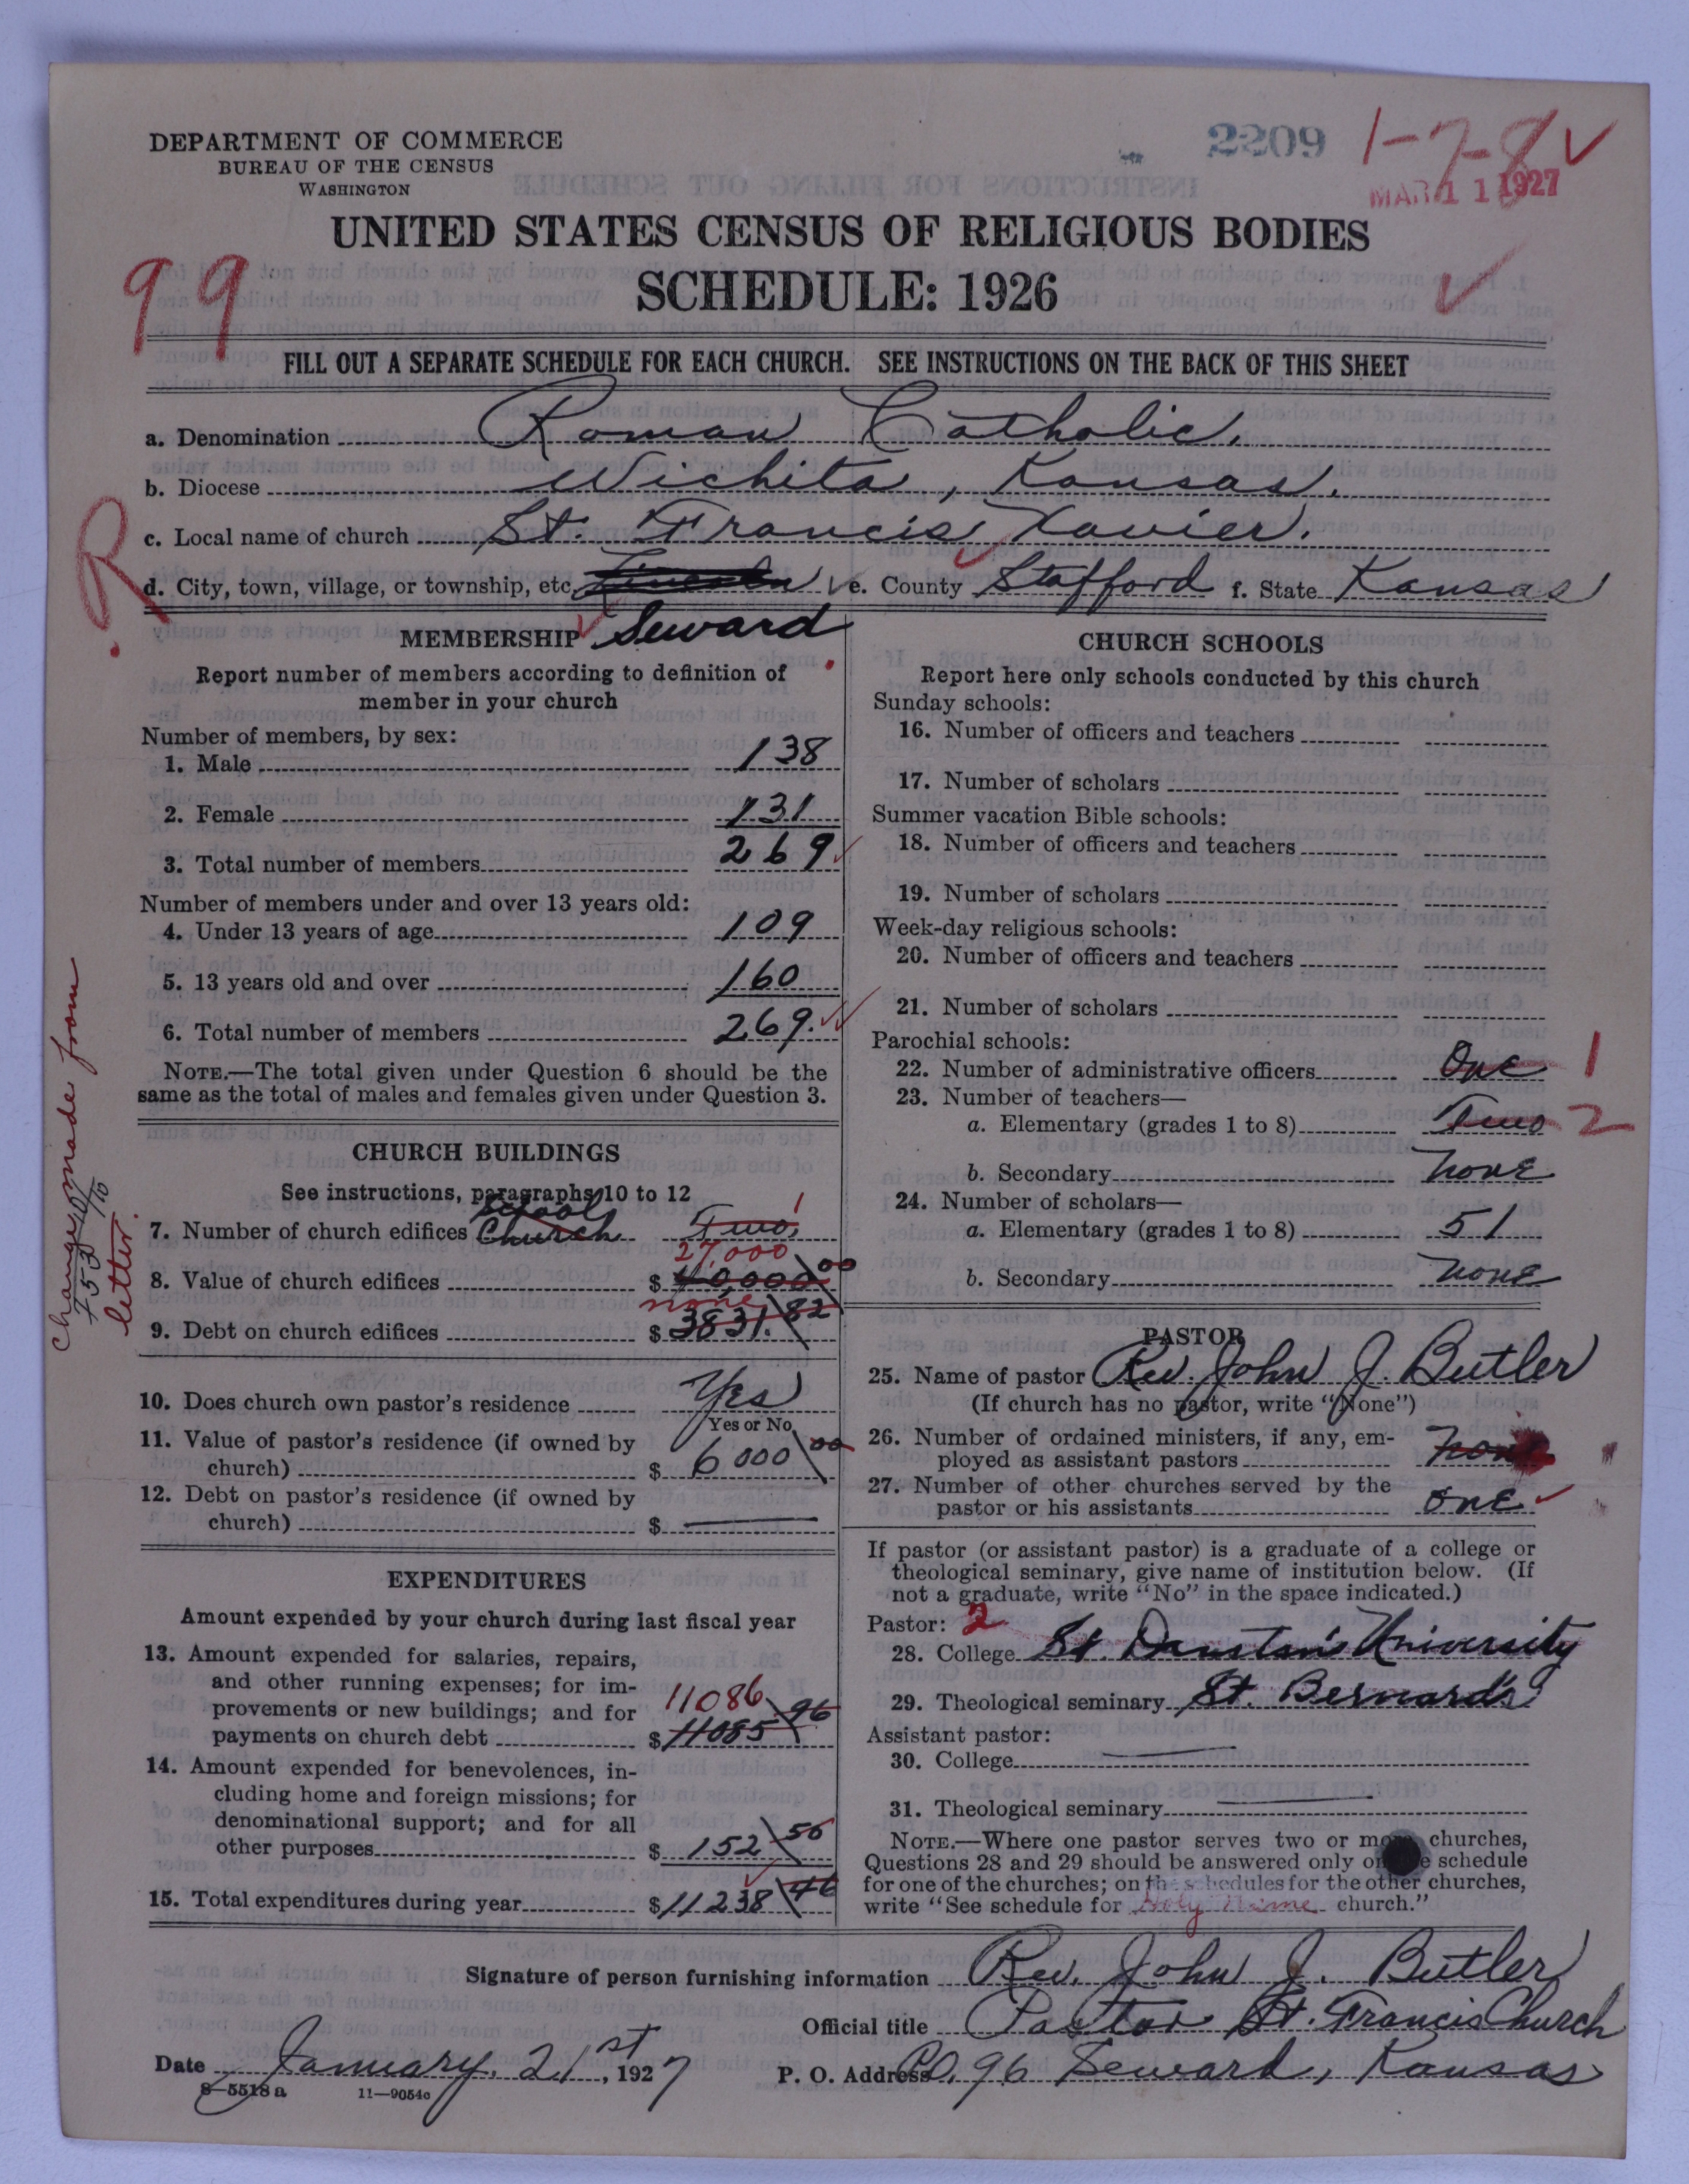 DEPARTMENT OF COMMERCE
BUREAU OF THE CENSUS
WASHINGTON
2209
1-7-8 ✓
MAR 11 1927
UNITED STATES CENSUS OF RELIGIOUS BODIES
SCHEDULE: 1926
99
FILL OUT A SEPARATE SCHEDULE FOR EACH CHURCH. SEE INSTRUCTIONS ON THE BACK OF THIS SHEET
a. Denomination Roman Catholic.
b. Diocese Wichita, Kansas.
c. Local name of church St. Francis Xavier.
R
d. City, town, village, or township, etc. e. County Stafford f. State Kansas
Seward
MEMBERSHIP
Report number of members according to definition of
member in your church
Number of members, by sex:
1. Male 138
2. Female 131
3. Total number of members 269
Number of members under and over 13 years old:
4. Under 13 years of age 109
5. 13 years old and over 160
6. Total number of members 269.
NOTE.—The total given under Question 6 should be the
same as the total of males and females given under Question 3.
CHURCH BUILDINGS
See instructions, paragraphs 10 to 12
7. Number of church edifices School Church Two, 1
8. Value of church edifices $ 40,000 00 27,000
9. Debt on church edifices $ 3831. 82 none
10. Does church own pastor's residence Yes
Yes or No
11. Value of pastor's residence (if owned by
church) $ 6000 00
12. Debt on pastor's residence (if owned by
church) $
changes made from
letter.
EXPENDITURES
Amount expended by your church during last fiscal year
13. Amount expended for salaries, repairs,
and other running expenses; for im-
provements or new buildings; and for
payments on church debt $ 11085 96 11086
14. Amount expended for benevolences, in-
cluding home and foreign missions; for
denominational support; and for all
other purposes $ 152 50
15. Total expenditures during year $ 11238 46
CHURCH SCHOOLS
Report here only schools conducted by this church
Sunday schools:
16. Number of officers and teachers
17. Number of scholars
Summer vacation Bible schools:
18. Number of officers and teachers
19. Number of scholars
Week-day religious schools:
20. Number of officers and teachers
21. Number of scholars
Parochial schools:
22. Number of administrative officers One 1
23. Number of teachers—
a. Elementary (grades 1 to 8) Two 2
b. Secondary none
24. Number of scholars—
a. Elementary (grades 1 to 8) 51
b. Secondary none
PASTOR
25. Name of pastor Rev. John J. Butler
(If church has no pastor, write "None")
26. Number of ordained ministers, if any, em-
ployed as assistant pastors none
27. Number of other churches served by the
pastor or his assistants one
If pastor (or assistant pastor) is a graduate of a college or
theological seminary, give name of institution below. (If
not a graduate, write "No" in the space indicated.)
Pastor: 2
28. College St. Dunstan's University
29. Theological seminary St. Bernard's
Assistant pastor:
30. College
31. Theological seminary
NOTE.—Where one pastor serves two or more churches,
Questions 28 and 29 should be answered only on schedule
for one of the churches; on the schedules for the other churches,
write "See schedule for Holy Name church."
Signature of person furnishing information Rev. John J. Butler
Official title Pastor St. Francis Church
Date January, 21st, 1927 P. O. Address 96 Seward, Kansas
8-5518a 11—9054c